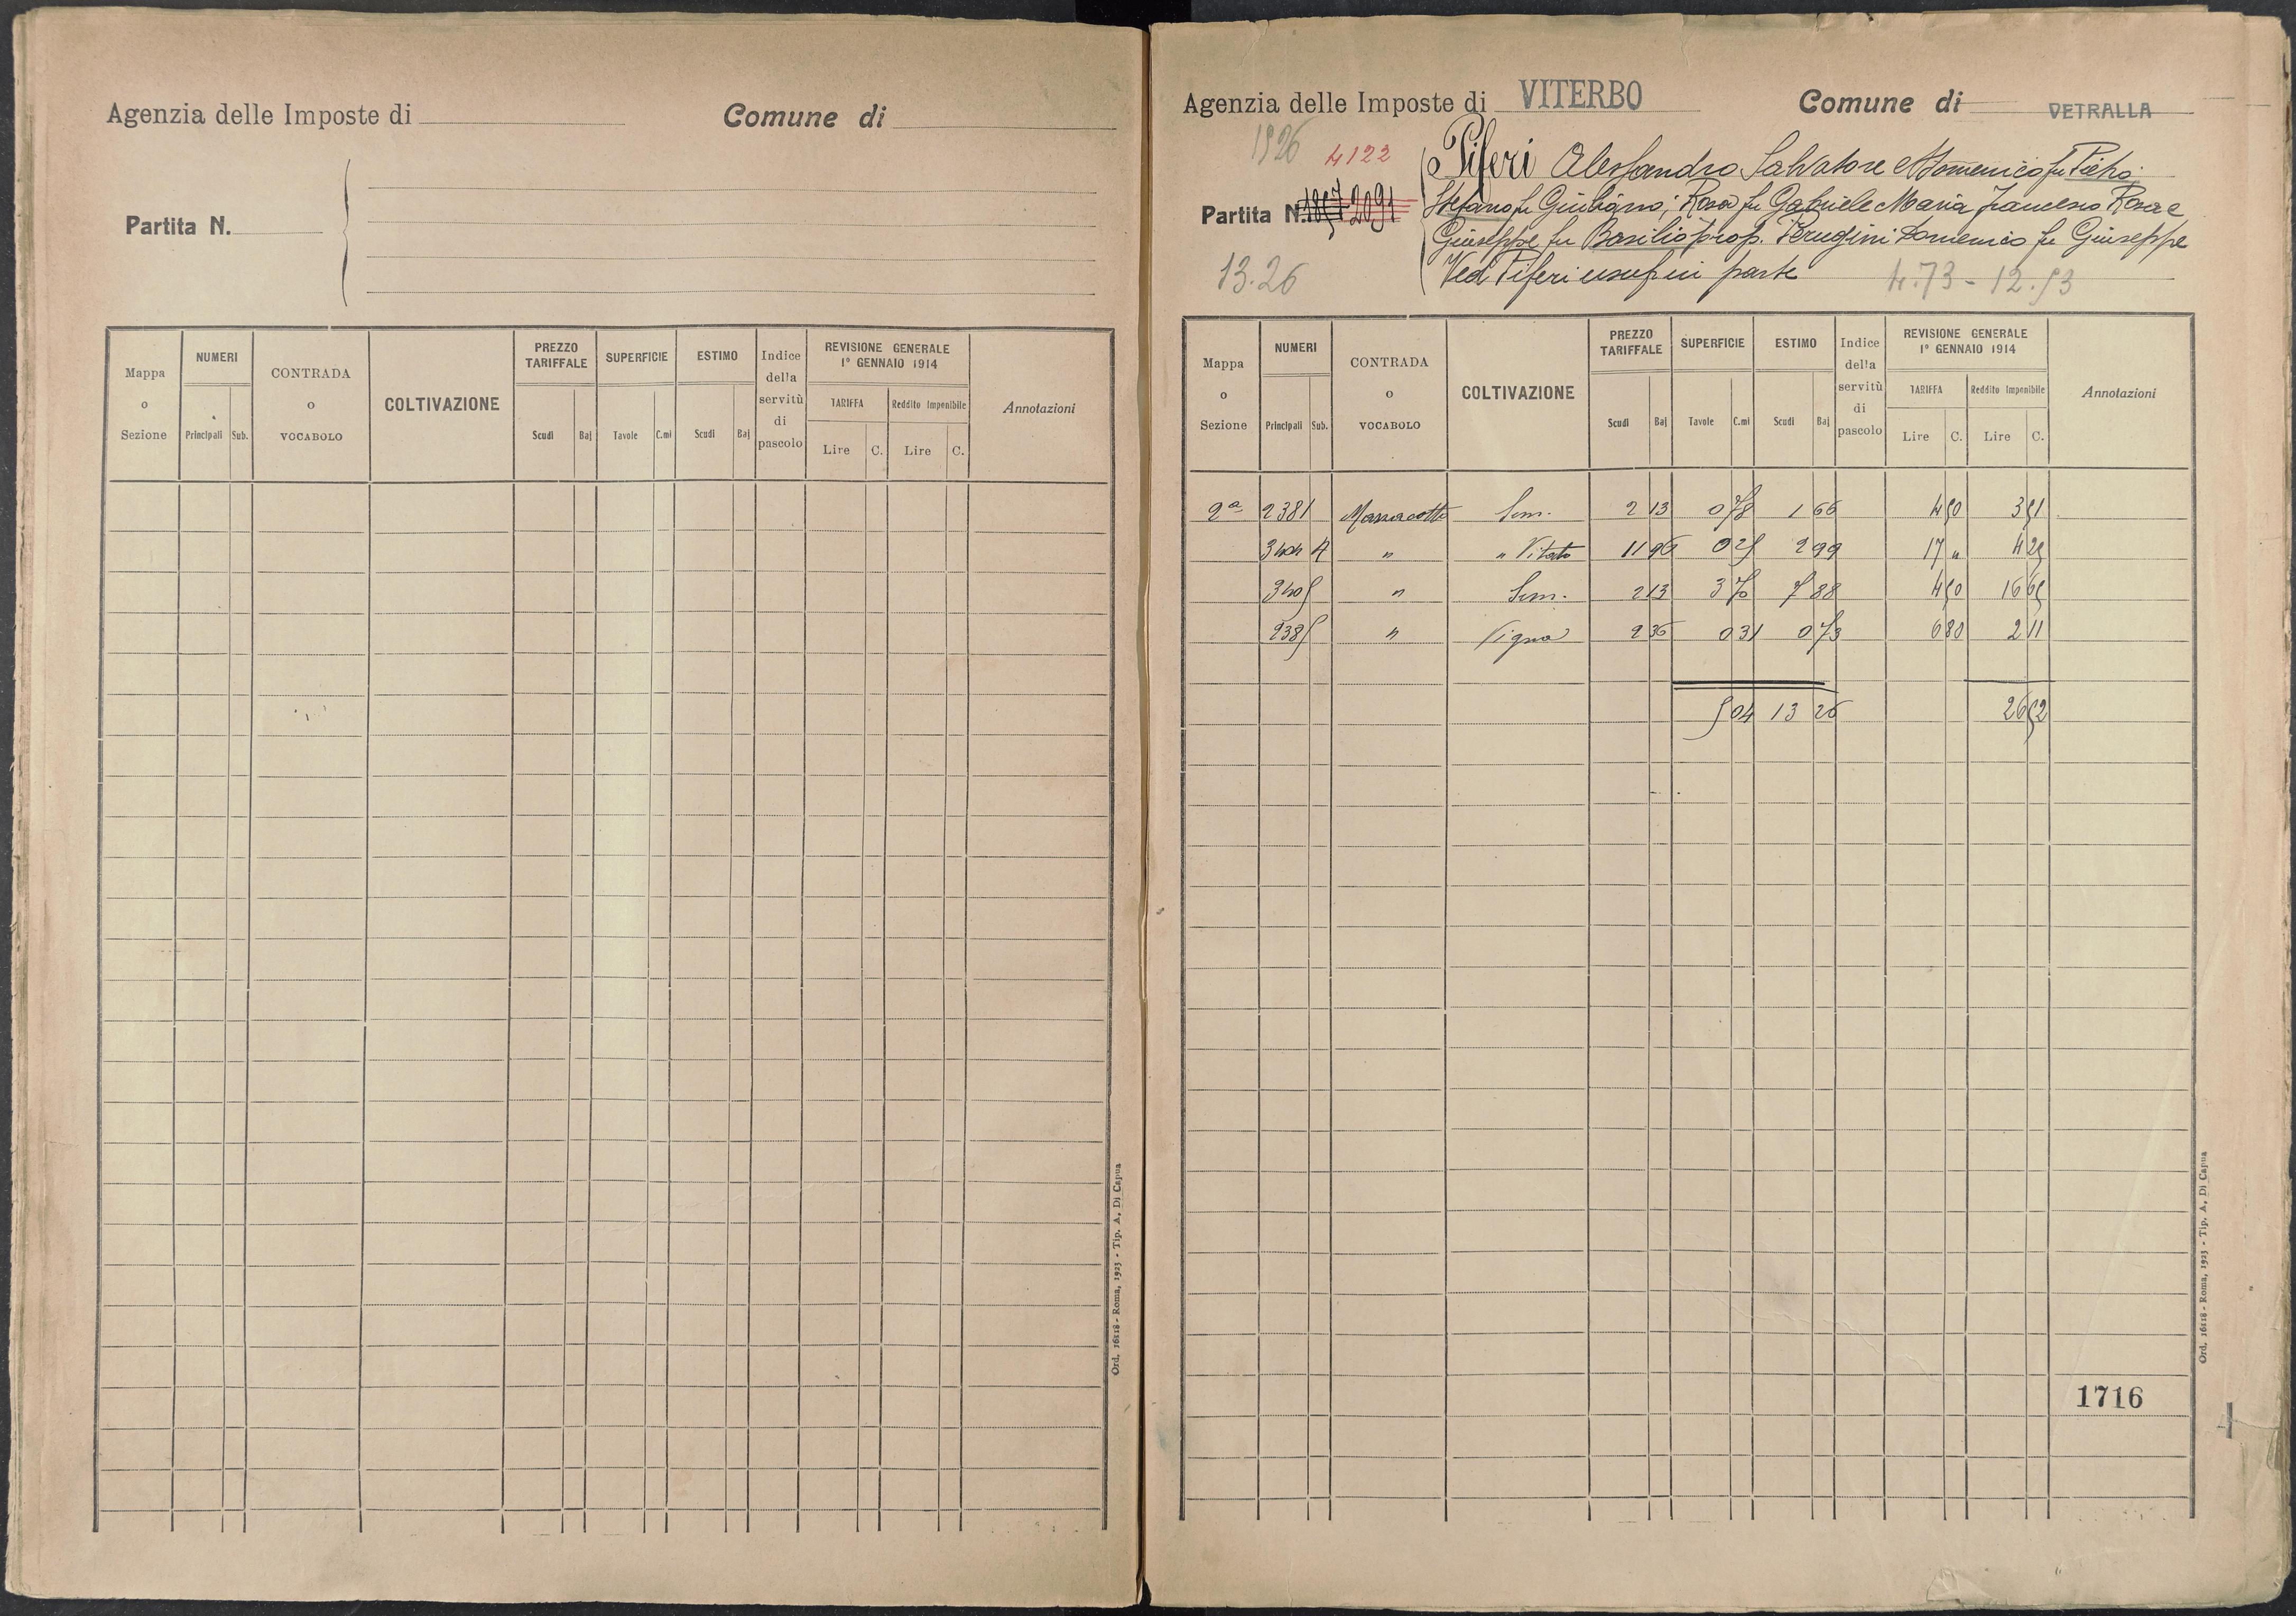 Agenzia delle Imposte di
Comune di
Partita N.
Mappa o Sezione
NUMERI
Principali Sub.
CONTRADA o VOCABOLO
COLTIVAZIONE
PREZZO TARIFFALE
Scudi Baj
SUPERFICIE
Tavole C.mi
ESTIMO
Scudi Baj
Indice della servitù di pascolo
REVISIONE GENERALE
1° GENNAIO 1914
TARIFFA Reddito Imponibile
Lire C. Lire C.
Annotazioni
Ord. 16118 - Roma, 1923 - Tip. A. Di Capua
Agenzia delle Imposte di VITERBO
Comune di VETRALLA
1926 4122
Partita N. 2091
13.26
Piferi Alessandro Salvatore e Domenico fu Pietro
Stefano fu Giuliano; Rosa fu Gabriele Maria Francesco Rosa e
Giuseppe fu Basilio prop. Perugini Domenico fu Giuseppe
Ved Piferi usuf in parte
4.73 - 12.53
Mappa o Sezione
NUMERI
Principali Sub.
CONTRADA o VOCABOLO
COLTIVAZIONE
PREZZO TARIFFALE
Scudi Baj
SUPERFICIE
Tavole C.mi
ESTIMO
Scudi Baj
Indice della servitù di pascolo
REVISIONE GENERALE
1° GENNAIO 1914
TARIFFA Reddito Imponibile
Lire C. Lire C.
Annotazioni
2a 2381 Sem. 2 13 0 78 1 66 4 50 3 51
3404 " " Vitato 11 96 0 25 2 99 17 " 4 25
3405 " Sem. 2 13 3 70 7 88 4 50 16 65
2385 " Vigna 2 36 0 31 0 73 6 80 2 11
5 04 13 26 26 52
1716
Ord. 16118 - Roma, 1923 - Tip. A. Di Capua